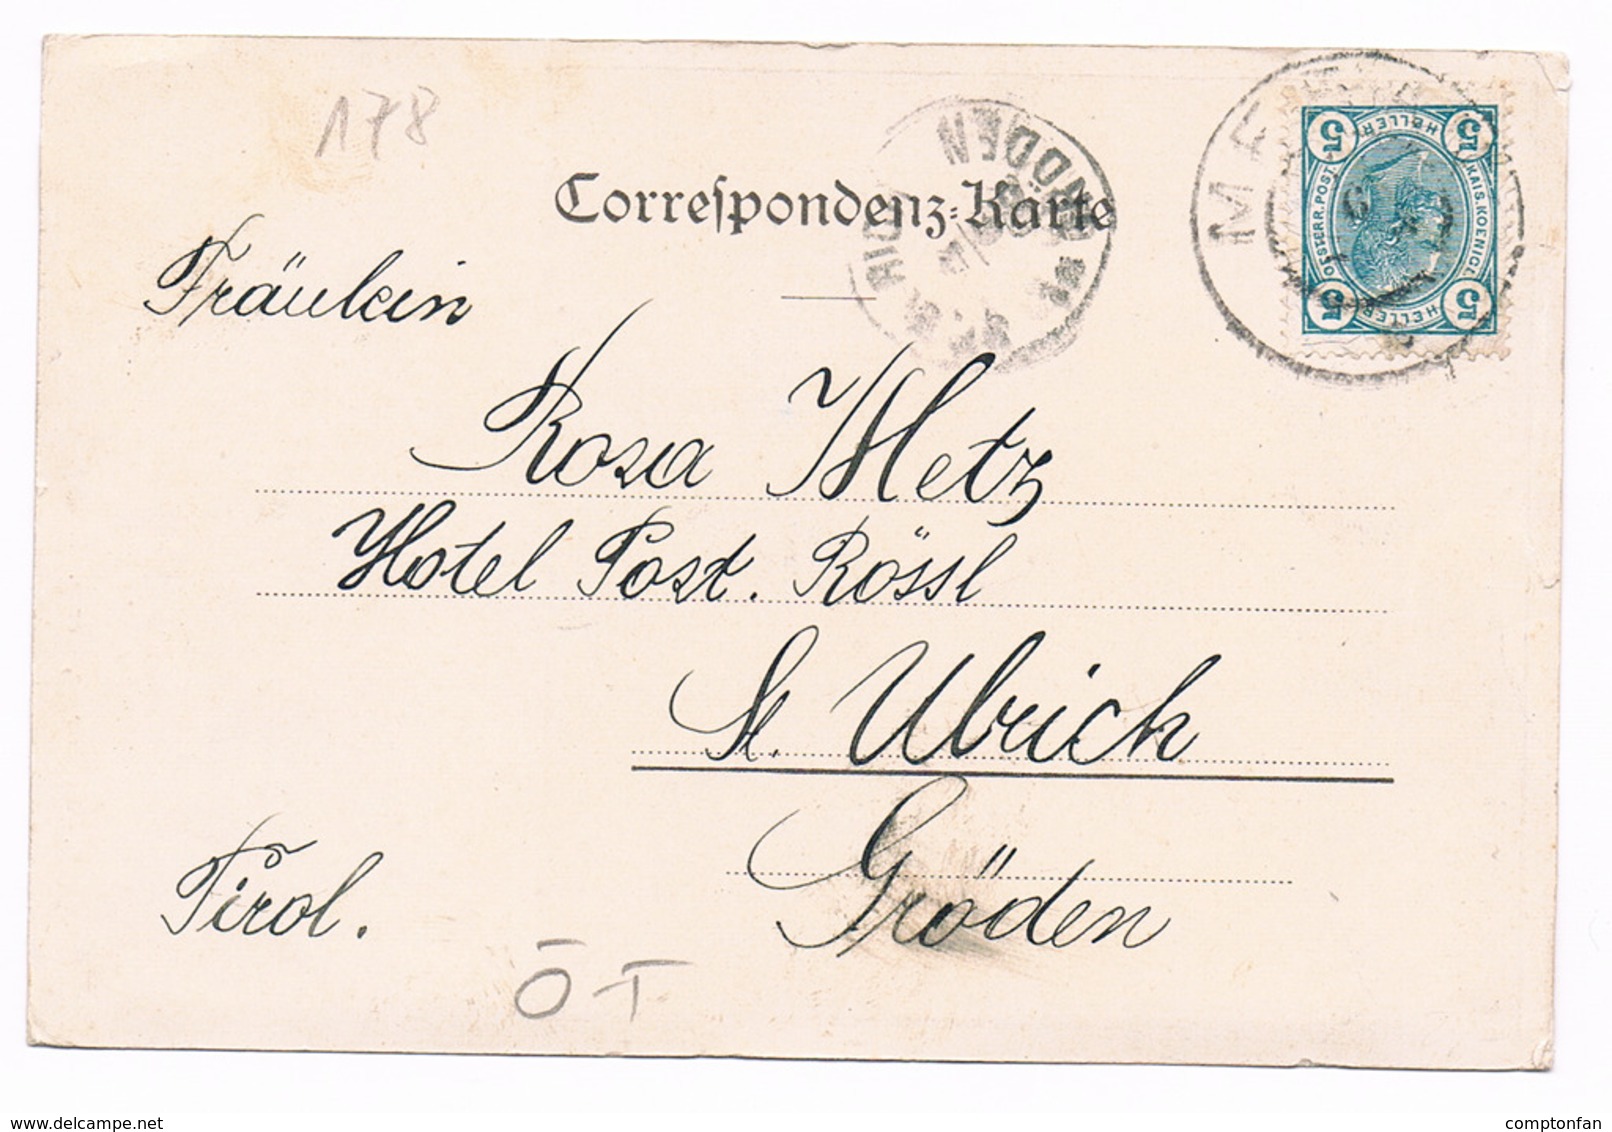 178
Correspondenz-Karte
Fräulein
Rosa Metz
Hotel Post. Rössl
St. Ulrich
Gröden
Tirol.
Ö-T
5 HELLER 5
KAIS. KOENIGL.
OESTERR. POST.
5 HELLER 5
delcampe.net
comptonfan